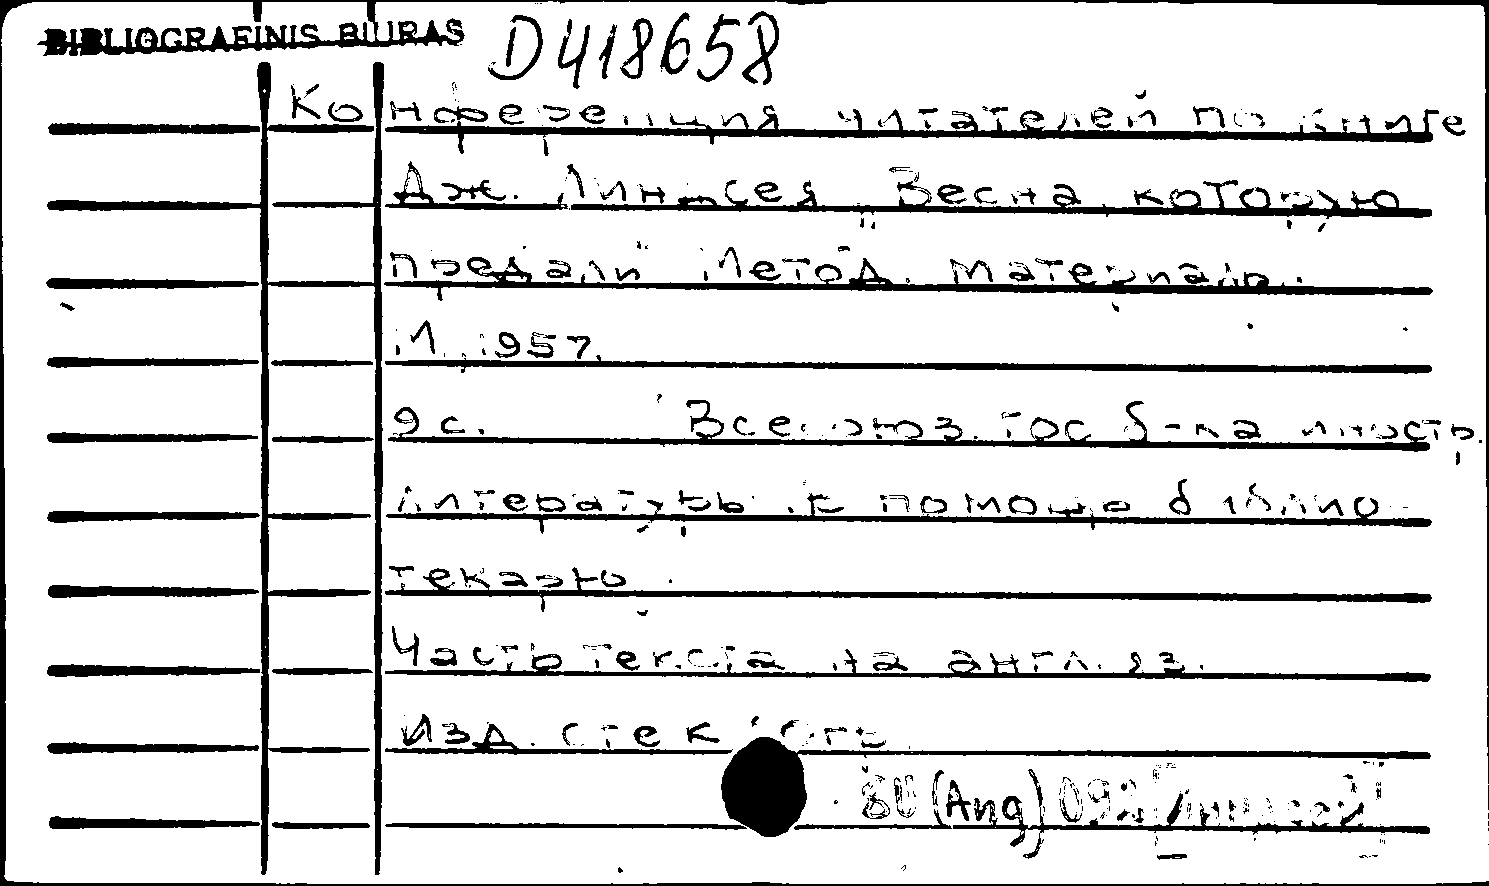 BIBLIOGRAFINIS BIURAS D418658
Конференция читателей по книге
Дж. Линдсея „Весна, которую
предали". Метод. материалы.
М., 1957.
9 с. (Всесоюз. гос. б-ка иностр.
литературы. В помощь библио-
текарю).
Часть текста на англ. яз.
Изд. стеклогр.
8И(Ang)092[Линдсей]